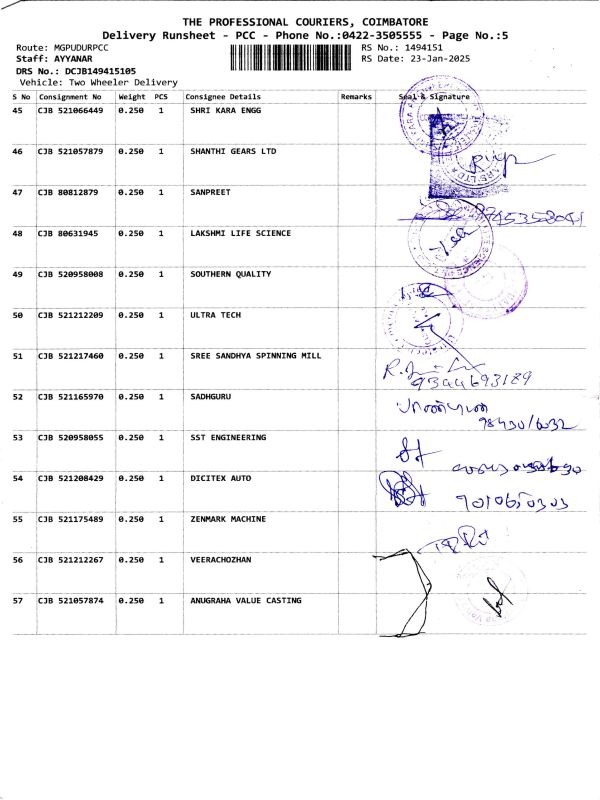 THE PROFESSIONAL COURIERS, COIMBATORE
Delivery Runsheet - PCC - Phone No.:0422-3505555 - Page No.:5
Route: MGPUDURPCC RS No.: 1494151
Staff: AYYANAR RS Date: 23-Jan-2025
DRS No.: DCJB149415105
Vehicle: Two Wheeler Delivery
S No Consignment No Weight PCS Consignee Details Remarks Seal & Signature
45 CJB 521066449 0.250 1 SHRI KARA ENGG
46 CJB 521057879 0.250 1 SHANTHI GEARS LTD
47 CJB 80812879 0.250 1 SANPREET
48 CJB 80631945 0.250 1 LAKSHMI LIFE SCIENCE
49 CJB 520958008 0.250 1 SOUTHERN QUALITY
50 CJB 521212209 0.250 1 ULTRA TECH
51 CJB 521217460 0.250 1 SREE SANDHYA SPINNING MILL
9344693189
52 CJB 521165970 0.250 1 SADHGURU
53 CJB 520958055 0.250 1 SST ENGINEERING
54 CJB 521208429 0.250 1 DICITEX AUTO
55 CJB 521175489 0.250 1 ZENMARK MACHINE
56 CJB 521212267 0.250 1 VEERACHOZHAN
57 CJB 521057874 0.250 1 ANUGRAHA VALUE CASTING